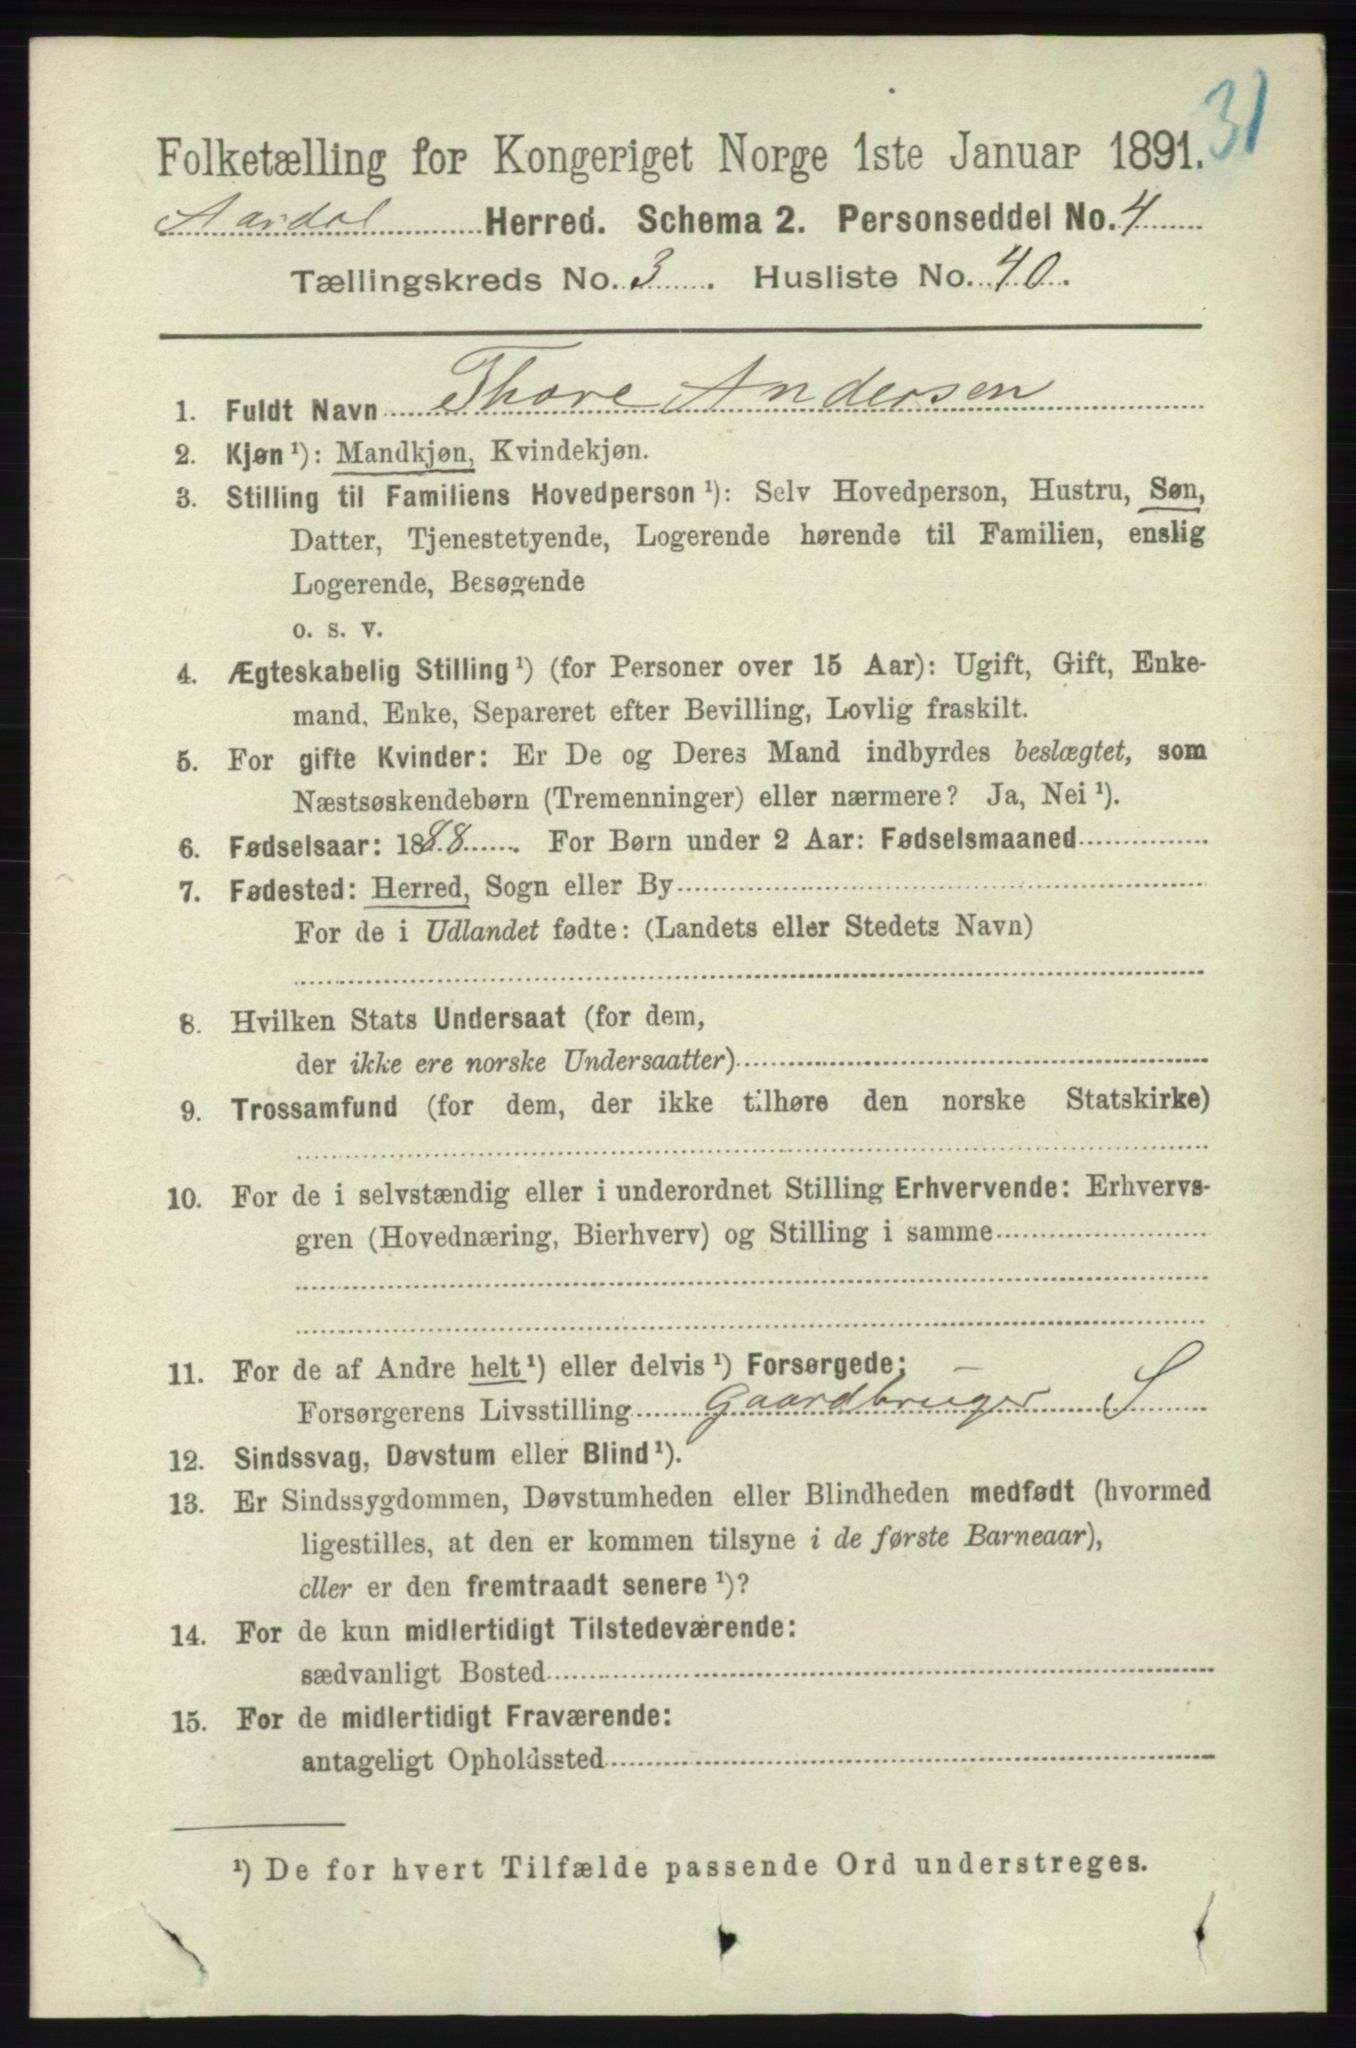 31
Folketælling for Kongeriget Norge 1ste Januar 1891.
Aardal Herred. Schema 2. Personseddel No. 4
Tællingskreds No. 3. Husliste No. 40.
1. Fuldt Navn Thore Andersen
2. Kjøn ¹): Mandkjøn, Kvindekjøn.
3. Stilling til Familiens Hovedperson ¹): Selv Hovedperson, Hustru, Søn,
Datter, Tjenestetyende, Logerende hørende til Familien, enslig
Logerende, Besøgende
o. s. v.
4. Ægteskabelig Stilling ¹) (for Personer over 15 Aar): Ugift, Gift, Enke-
mand, Enke, Separeret efter Bevilling, Lovlig fraskilt.
5. For gifte Kvinder: Er De og Deres Mand indbyrdes beslægtet, som
Næstsøskendebørn (Tremenninger) eller nærmere? Ja, Nei ¹).
6. Fødselsaar: 1888. For Børn under 2 Aar: Fødselsmaaned
7. Fødested: Herred, Sogn eller By
For de i Udlandet fødte: (Landets eller Stedets Navn)
8. Hvilken Stats Undersaat (for dem,
der ikke ere norske Undersaatter)
9. Trossamfund (for dem, der ikke tilhøre den norske Statskirke)
10. For de i selvstændig eller i underordnet Stilling Erhvervende: Erhvervs-
gren (Hovednæring, Bierhverv) og Stilling i samme
11. For de af Andre helt ¹) eller delvis ¹) Forsørgede:
Forsørgerens Livsstilling Gaardbruger S
12. Sindssvag, Døvstum eller Blind ¹).
13. Er Sindssygdommen, Døvstumheden eller Blindheden medfødt (hvormed
ligestilles, at den er kommen tilsyne i de første Barneaar),
eller er den fremtraadt senere ¹)?
14. For de kun midlertidigt Tilstedeværende:
sædvanligt Bosted
15. For de midlertidigt Fraværende:
antageligt Opholdssted
¹) De for hvert Tilfælde passende Ord understreges.